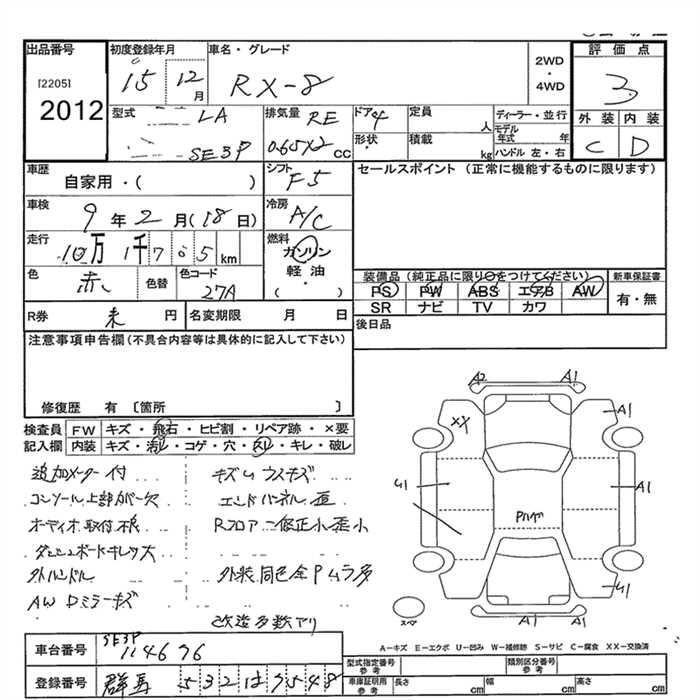 出品番号 初度登録年月 車名・グレード 2WD ・ 4WD 評価点
[2205] 2012 15 12月 RX-8 3
型式 LA SE3P 排気量 RE 0.65X2 cc ドア 4 形状・ 定員 人 積載 kg ディーラー・並行 モデル年式 年 ハンドル 左・右 外装 内装
C D
車歴 自家用・( ) シフト F5 セールスポイント (正常に機能するものに限ります)
車検 9年2月(18日) 冷房 A/C
走行 10万1千765km 燃料 ガソリン 軽油 ( ・ )
色 赤 色替 色コード 27A
装備品(純正品に限り○をつけてください) 新車保証書
PS PW ABS エアB AW 有・無
SR ナビ TV カワ
R券 未 円 名変期限 月 日 後日品
注意事項申告欄(不具合内容等は具体的に記入して下さい)
修復歴 有 〔箇所 〕
検査員記入欄 FW キズ・飛石・ヒビ割・リペア跡・×要
内装 キズ・汚レ・コゲ・穴・スレ・キレ・破レ
追加メーター付 キズU ウスキズ
コンソール上部カバー欠 エンドパネル歪
オーディオ取付不良 Rフロア 修正小歪小
ダッシュボードキレツ大
外ハンドル 外装同色全Pムラ多
AW Dミラーキズ
改造多数アリ
A2 A1
XX A1
U1 A1
Pルーフ
U1
スペア A2 A1
A-キズ E-エクボ U-凹み W-補修跡 S-サビ C-腐食 XX-交換済
車台番号 SE3P 114676 型式指定番号 参考 類別区分番号 参考
登録番号 群馬 532 は 7548 車庫証明用 参考 長さ cm 幅 cm 高さ cm